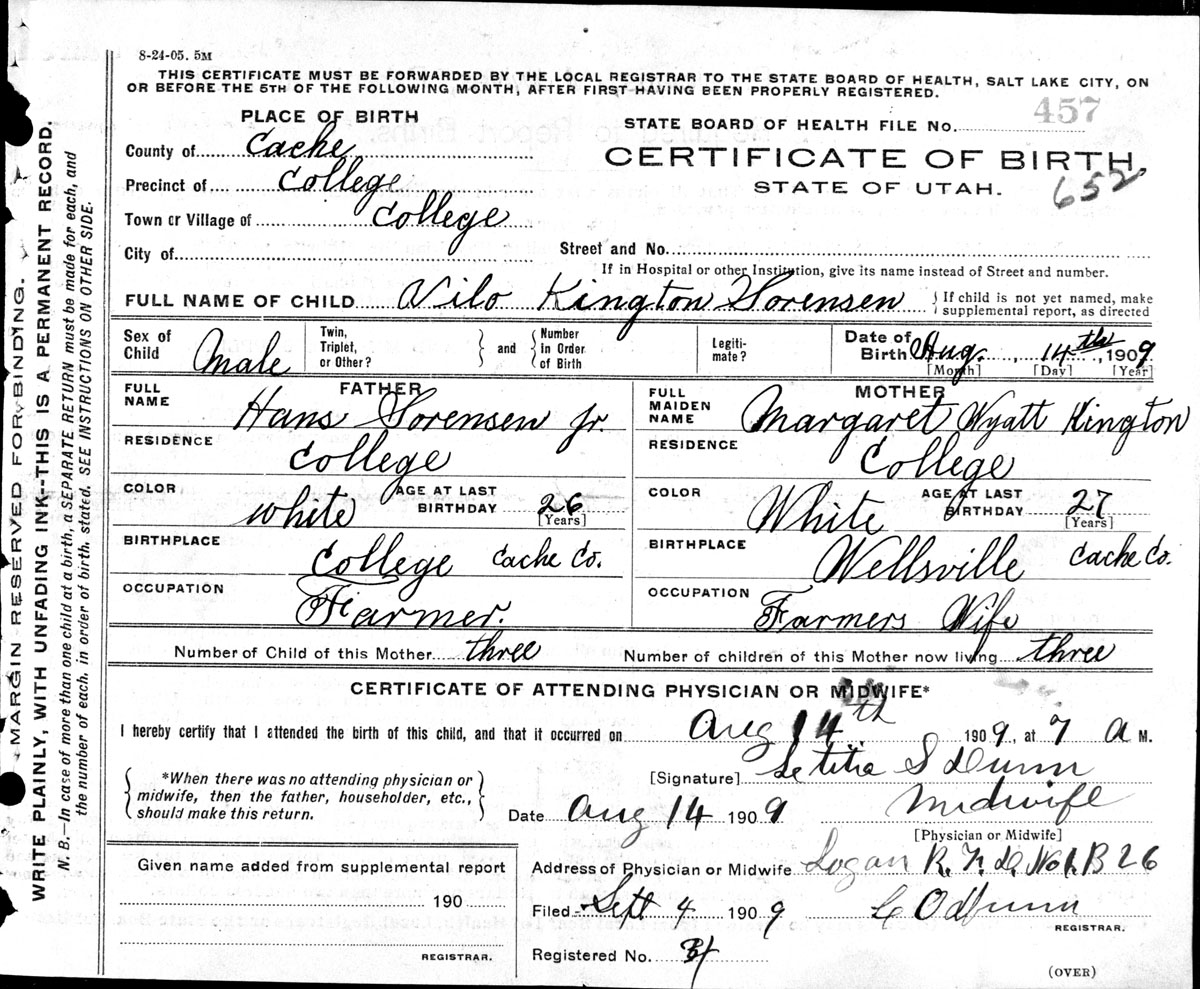 8-24-05. 5M
THIS CERTIFICATE MUST BE FORWARDED BY THE LOCAL REGISTRAR TO THE STATE BOARD OF HEALTH, SALT LAKE CITY, ON
OR BEFORE THE 5TH OF THE FOLLOWING MONTH, AFTER FIRST HAVING BEEN PROPERLY REGISTERED.
PLACE OF BIRTH
County of Cache
Precinct of College
Town or Village of College
City of
STATE BOARD OF HEALTH FILE No. 457
CERTIFICATE OF BIRTH,
STATE OF UTAH.
652
Street and No.
If in Hospital or other Institution, give its name instead of Street and number.
FULL NAME OF CHILD Vilo Kington Sorensen
If child is not yet named, make
supplemental report, as directed
Sex of Child Male
Twin, Triplet, or Other?
and
Number In Order of Birth
Legiti-mate?
Date of Birth Aug. 14th, 1909
[Month] [Day] [Year]
FATHER
FULL NAME Hans Sorensen Jr.
RESIDENCE College
COLOR white AGE AT LAST BIRTHDAY 26
[Years]
BIRTHPLACE College Cache Co.
OCCUPATION Farmer.
MOTHER
FULL MAIDEN NAME Margaret Wyatt Kington
RESIDENCE College
COLOR White AGE AT LAST BIRTHDAY 27
[Years]
BIRTHPLACE Wellsville Cache Co.
OCCUPATION Farmers Wife
Number of Child of this Mother three
Number of children of this Mother now living three
CERTIFICATE OF ATTENDING PHYSICIAN OR MIDWIFE*
I hereby certify that I attended the birth of this child, and that it occurred on Aug 14th 1909, at 7 A M.
*When there was no attending physician or
midwife, then the father, householder, etc.,
should make this return.
[Signature] Letitia S Dunn
Date Aug 14 1909 Midwife
[Physician or Midwife]
Given name added from supplemental report
190
REGISTRAR.
Address of Physician or Midwife Logan R. F. D. No 1. B 26
Filed Sept 4 1909 C O Dunn
REGISTRAR.
Registered No.
(OVER)
MARGIN RESERVED FOR BINDING.
WRITE PLAINLY, WITH UNFADING INK--THIS IS A PERMANENT RECORD.
N. B.—In case of more than one child at a birth, a SEPARATE RETURN must be made for each, and
the number of each, in order of birth, stated. SEE INSTRUCTIONS ON OTHER SIDE.